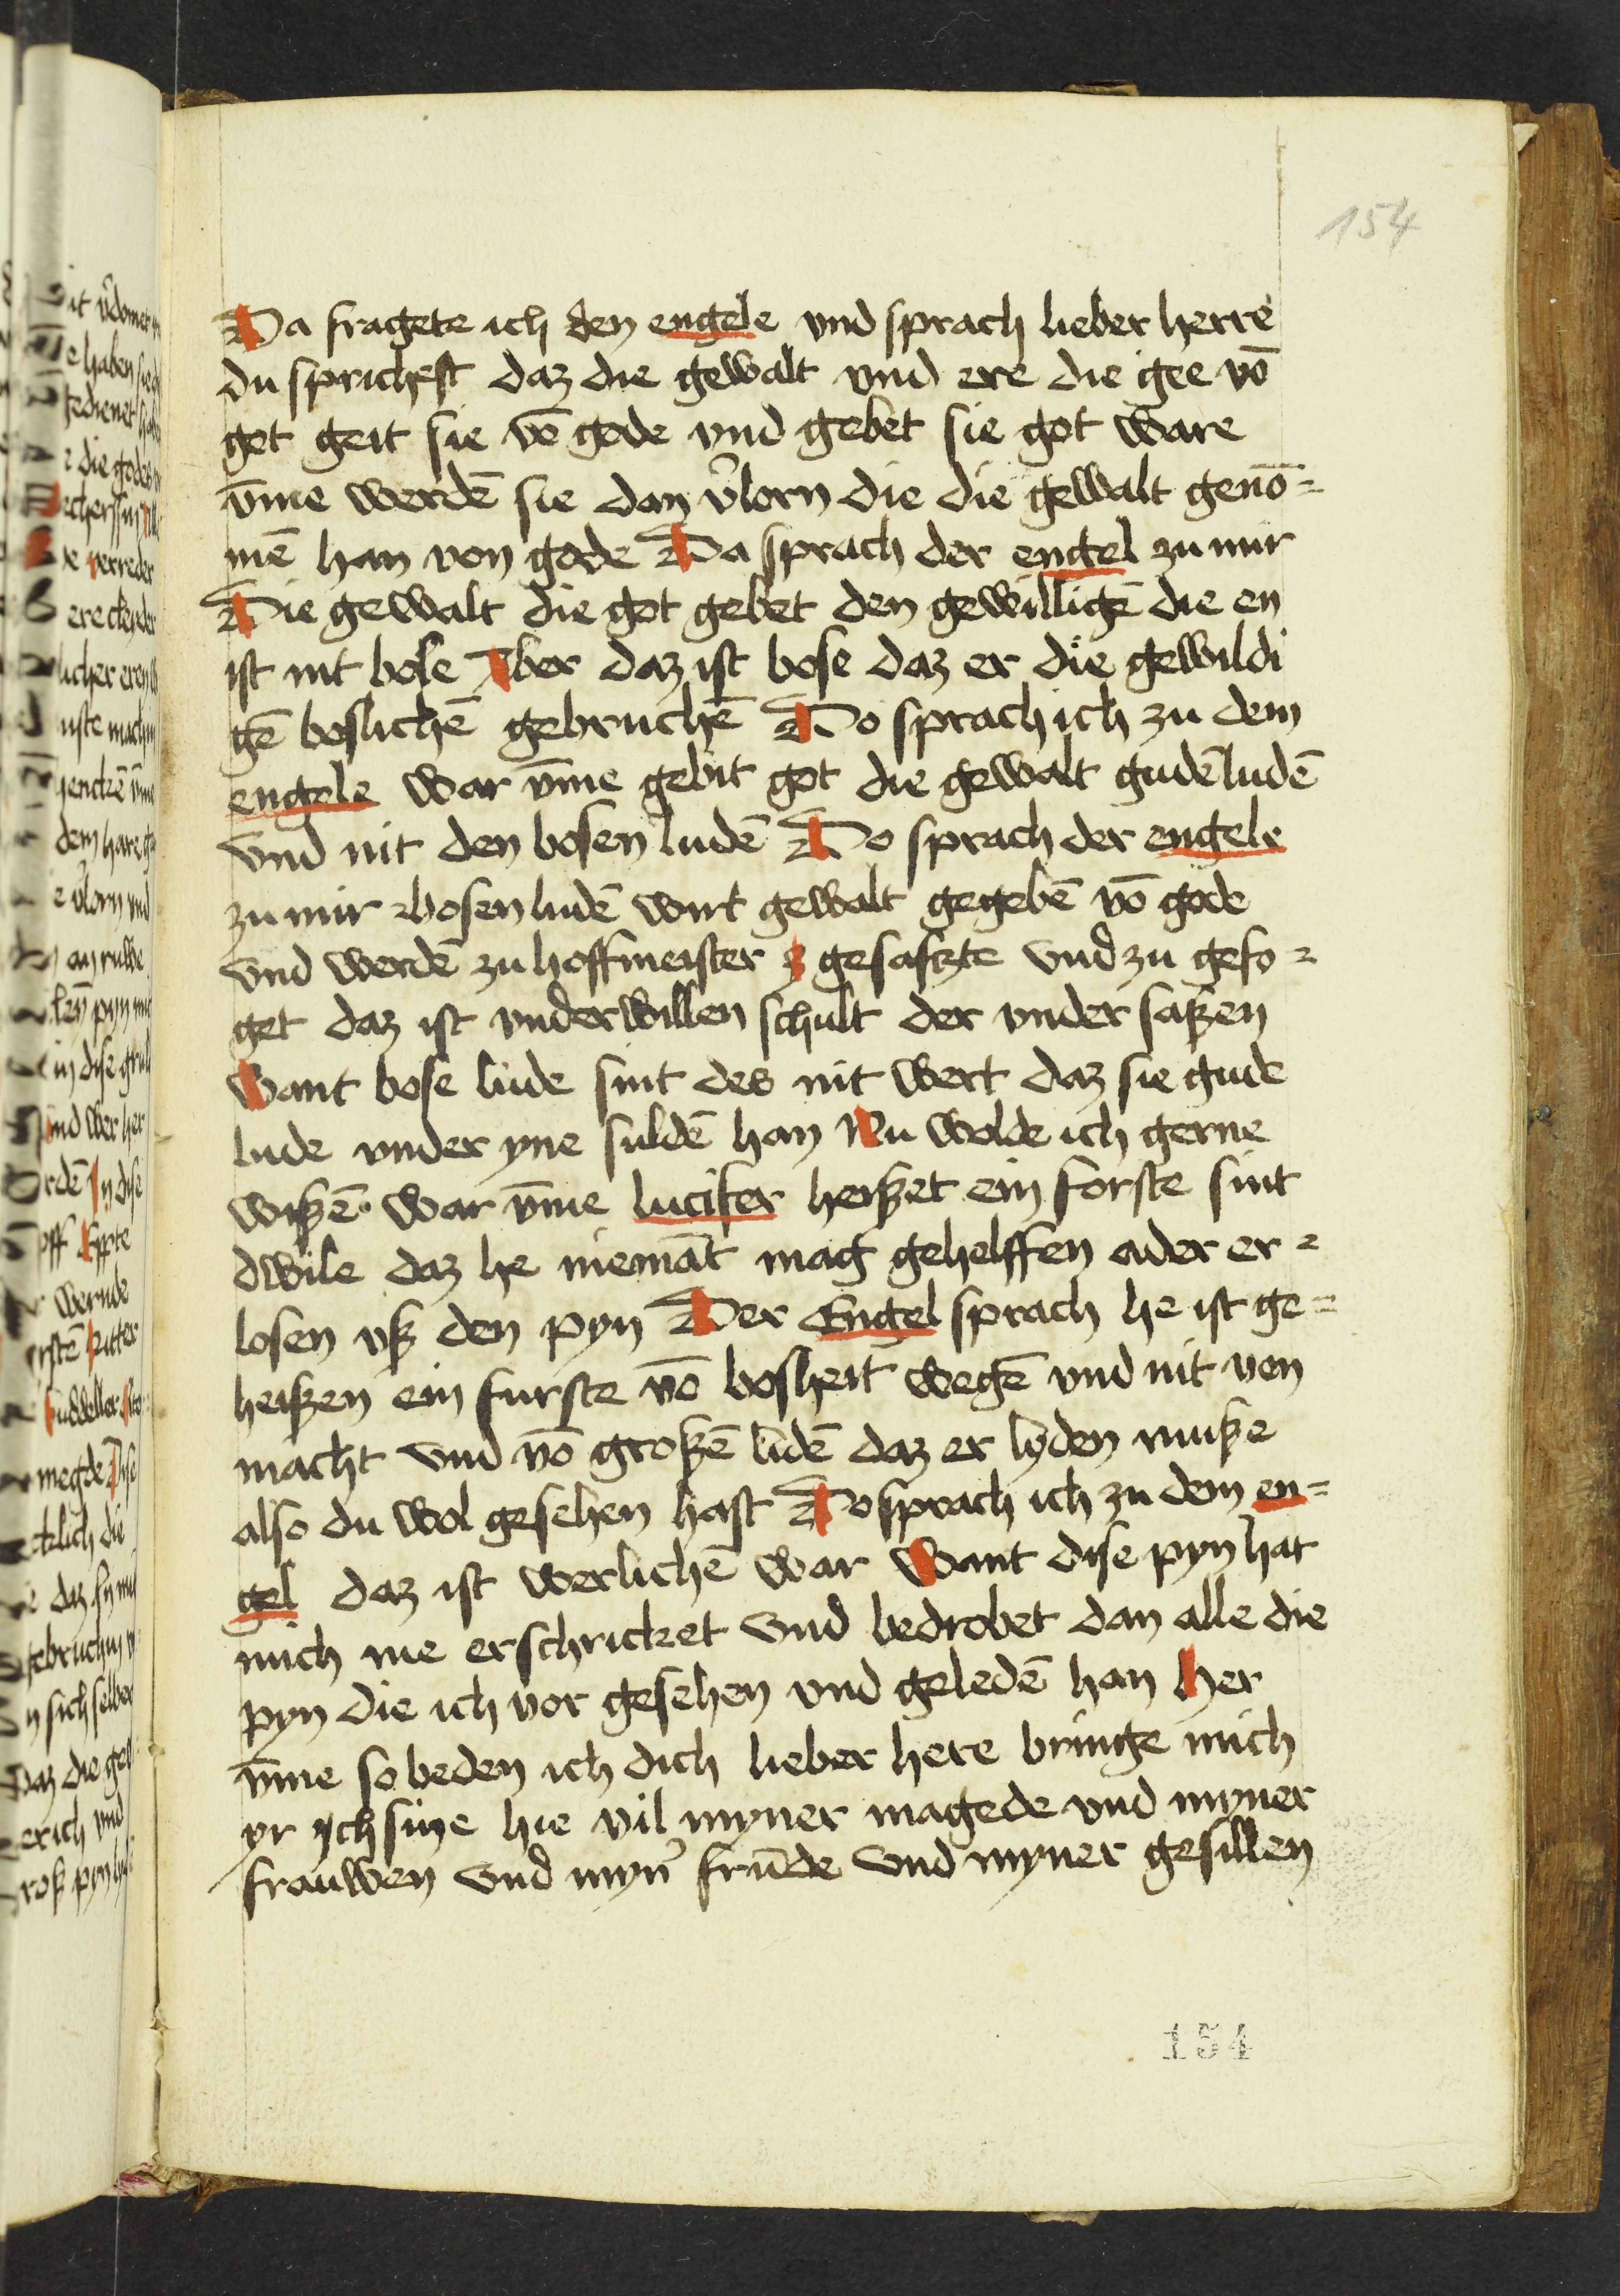 154
Da fragete ich den engele vnd sprach lieber herre
du sprichest daz die gewalt vnd ere die gee vō
got geit sie vō gode vnd gebet sie got ware
v̄me werdē sie dan v̓lorn die die gewalt genō=
mē han von gode Da sprach der engel zu mir
Die gewalt die got gebet den gewilligē die en
ist nit bose Aber daz ist bose daz er die gewildi
gē boslichē gebruchē Do sprach ich zu dem
engele war v̄me gebit got die gewalt gudē ludē
vnd nit den bosen ludē Do sprach der engele
zu mir bosen ludē wirt gewalt gegebē vō gode
vnd werdē zu hoffmeister gesaszte vnd zu gefo=
get daz ist vnderwillen schult der vnder saßen
want bose lude sint des nit wert daz sie gude
lude vnder yne suldē han Nu wolde ich gerne
wißē· war v̄me lucifer heißet ein forste sint
dwile daz he niemāt mag gehelffen ader er=
losen vß den pyn Der Engel sprach he ist ge=
heißen ein furste vō bosheit wegē vnd nit von
macht vnd vō großē lidē daz er lyden muße
also du wol gesehen hast Do sprach ich zu dem en=
gel daz ist werlichē war Want dise pyn hat
mich me erschricket vnd bedrobet dan alle die
pyn die ich vor gesehen vnd geledē han Her
v̄me so beden ich dich lieber here bringe mich
yr ych sihe hie vil myner magede vnd myner
frauwen vnd myn̓ frūde vnd myner gesillen
154